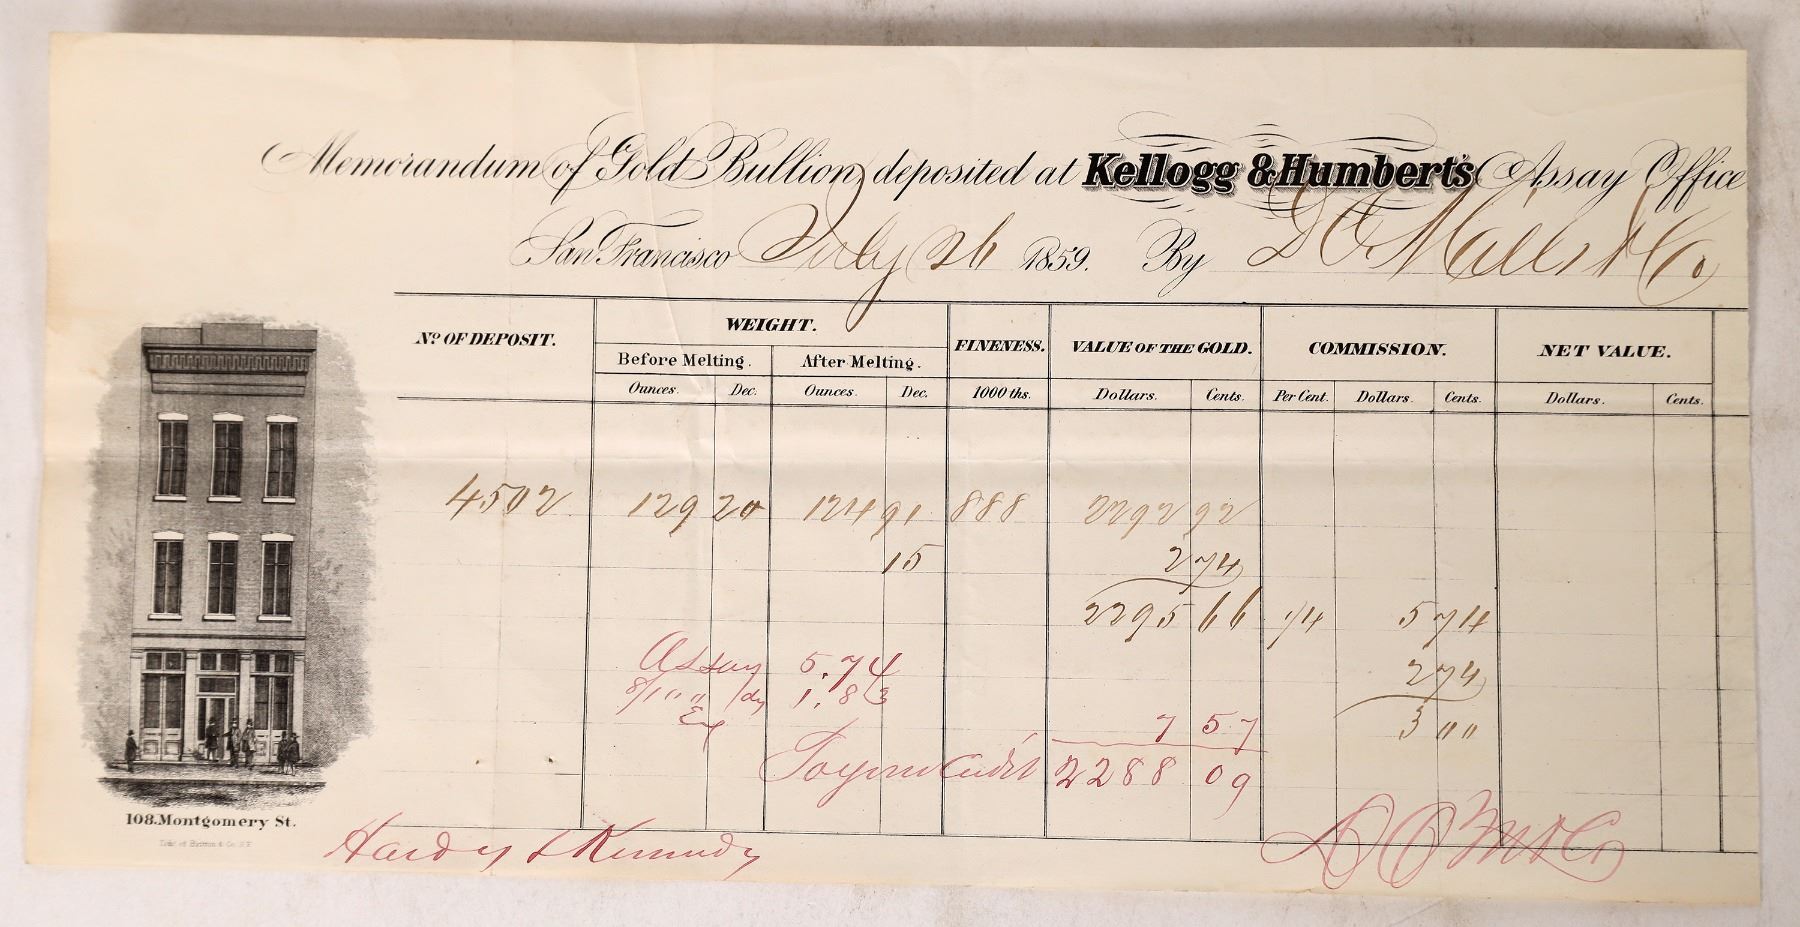 Memorandum of Gold Bullion, deposited at Kellogg & Humbert's Assay Office
San Francisco July 26 1859. By D O Mills & Co
No. OF DEPOSIT. WEIGHT. FINENESS. VALUE OF THE GOLD. COMMISSION. NET VALUE.
Before Melting. After Melting.
Ounces. Dec. Ounces. Dec. 1000 ths. Dollars. Cents. Per Cent. Dollars. Cents. Dollars. Cents.
4502 129 20 124 91 888 2292 92
15 2 74
2295 66 1/4 5 74
Assay 5.74 2 74
1.83
7 57 3 00
To your Credit 2288 09
108. Montgomery St.
Lith. of Britton & Co. S.F.
Hardy & Kennedy D O M & Co